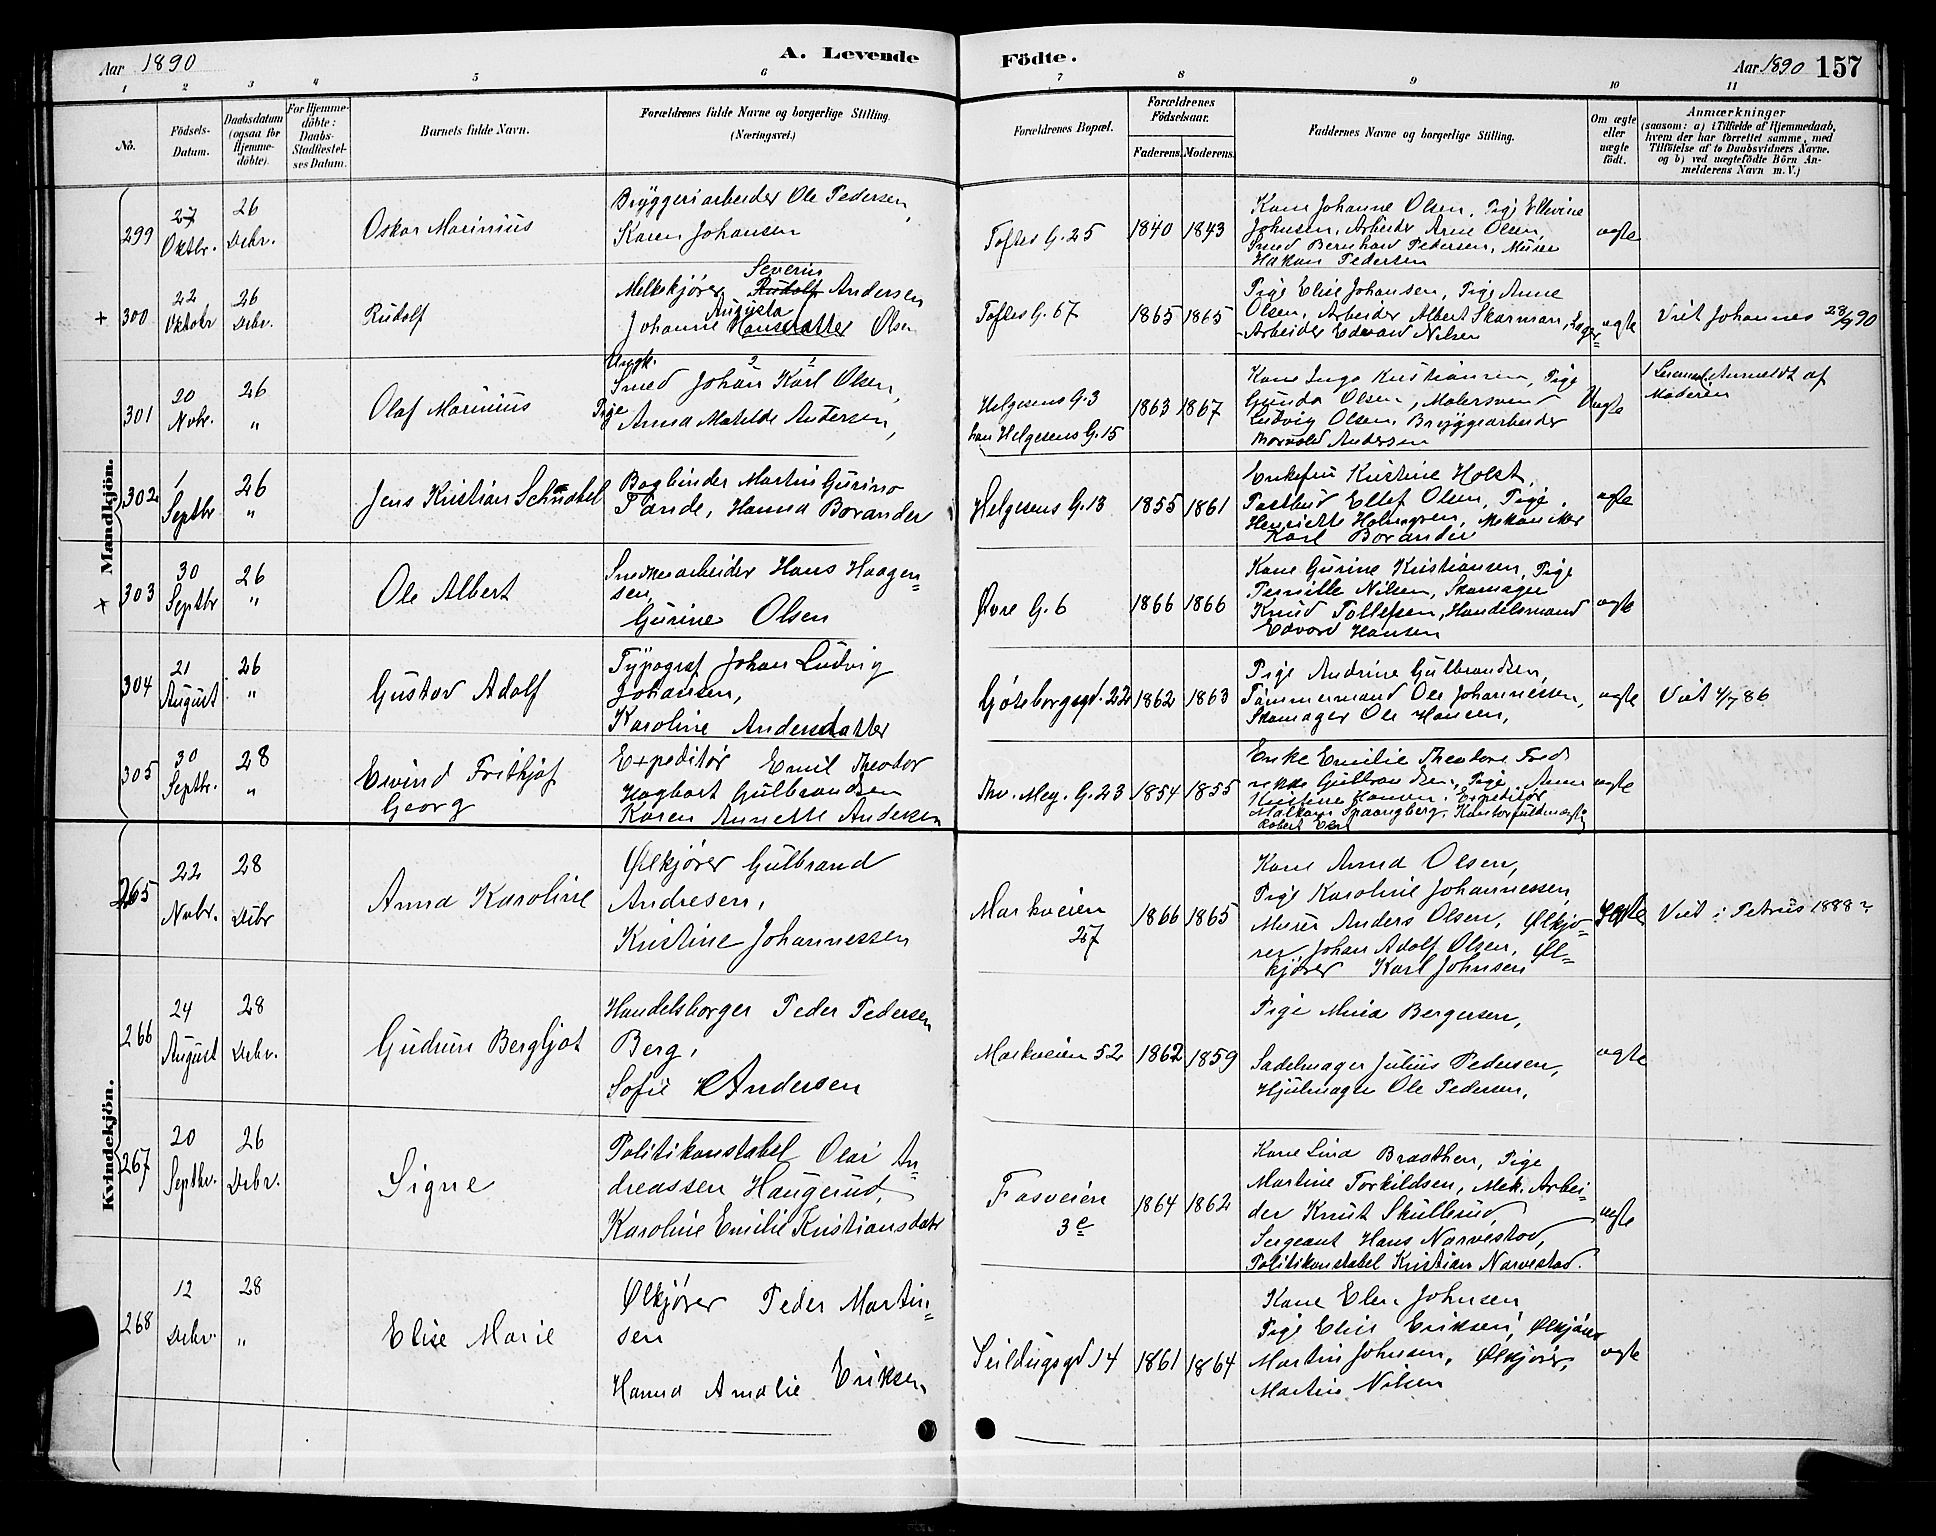 Aar 1890
A. Levende
Födte.
Aar 1890 157
1 2 3 4 5 6 7 8 9 10 11
No.
Födsels-Datum.
Daabsdatum (ogsaa for Hjemme-döbte).
For Hjemme-döbte: Daabs-Stadfæstel-ses Datum.
Barnets fulde Navn.
Forældrenes fulde Navne og borgerlige Stilling.
(Næringsvei.)
Forældrenes Bopæl.
Forældrenes Födselsaar.
Faderens. Moderens.
Faddernes Navne og borgerlige Stilling.
Om ægte eller uægte födt.
Anmærkninger
(saasom: a) i Tilfælde af Hjemmedaab,
hvem der har forrettet samme, med
Tilföielse af to Daabsvidners Navne.
og b) ved uægtefödte Börn An-
melderens Navn m. V.)
Mandkjön.
299
27 Oktbr.
26 Debr.
Oskar Marinius
Bryggeriarbeider Ole Pedersen,
Karen Johansen
Toftes G. 25
1840 1843
Kone Johanne Olsen, Pige Ellevine
Johnsen, Arbeider Arne Olsen,
Smed Bernhard Pedersen, Murer
Hakon Pedersen
ægte
+ 300
22 Oktobr
26 Debr.
Rudolf
Severin
Melkekjører Rudolf Andersen
Augusta
Johanne Hansdatter Olsen
Toftes G. 67
1865 1865
Pige Elise Johansen, Pige Anne
Olsen, Arbeider Albert Skarman, Lager-
Arbeider Edvard Nilsen
ægte
Viet Johannes 28/9 90
301
20 Nvbr.
26 "
Olaf Marinius
Ungk.
2 1
Smed Johan Karl Olsen,
Pige Anna Matilde Andersen,
Helgesens G. 3
hun Helgesens G. 15
1863 1867
Kone Inga Kristiansen, Pige
Gunda Olsen, Malersvend
Ludvig Olsen, Bryggearbeider
Thorvald Andersen
Uægte
Anmeldt af
Moderen
302
1 Septbr
26 "
Jens Kristian Schnabel
Bogbinder Martin Gurino
Tande, Hanna Borander
Helgesens G. 13
1855 1861
Enkefru Kristine Holst,
Postbud Ellef Olsen, Pige
Henriette Holmgren, Mekaniker
Karl Borander
ægte
x 303
30 Septbr
26 "
Ole Albert
Snedkerarbeider Hans Haagen-
sen,
Gurine Olsen
Øvre G. 6
1866 1866
Kone Gurine Kristiansen, Pige
Pernille Nilsen, Skomager
Knud Tollefsen, Handelsmand
Edvard Hansen
ægte
304
21 August
26 "
Gustav Adolf
Typograf Johan Ludvig
Johansen,
Karoline Andersdatter
Gøteborgsgd. 22
1862 1863
Pige Andrine Gulbrandsen,
Tømmermand Ole Johannessen,
Skomager Ole Hansen,
ægte
Viet 4/7 86
305
30 Septbr.
28 "
Eivind Frithjof
Georg
Expeditør Emil Theodor
Hagbart Gulbrandsen
Karen Annette Andersen
Thv. Mey. G. 23
1854 1855
Enke Emilie Theodora Fred
rikke Gulbrandsen, Pige Anne
Kristine Hansen, Expeditør
Malkom Spaangberg, Kontorfuldmægtig
Robert Elert
ægte
Kvindekjön.
265
22 Nvbr.
28 Debr
Anna Karoline
Ølkjører Gulbrand
Andresen,
Kristine Johannessen
Markveien
27
1866 1865
Kone Anna Olsen,
Pige Karoline Johannessen,
Murer Anders Olsen, Ølkjø-
rer Johan Adolf Olsen, Øl-
kjører Karl Johnsen
ægte
Viet i Petrus 1888?
266
24 August
28 Debr.
Gudrun Bergljot
Handelsborger Peder Pedersen
Berg,
Sofie Andersen
Markveien 52
1862 1859
Pige Mina Bergersen,
Sadelmager Julius Pedersen,
Hjulmager Ole Pedersen,
ægte
267
20 Septbr.
26 Debr.
Signe
Politikonstabel Olai An-
dreassen Haugerud,
Karoline Emilie Kristiansdatr
Fasveien
3e
1864 1862
Kone Lina Braathen, Pige
Martine Torkildsen, Mek. Arbei-
der Knut Skullerud,
Sergeant Hans Narvestad,
Politikonstabel Kristian Narvestad.
ægte
268
12 Debr.
28 "
Elise Marie
Ølkjører Peder Martin-
sen
Hanna Amalie Eriksen
Seildugsgd 14
1861 1864
Kone Elen Johnsen
Pige Elise Eriksen, Ølkjører
Martin Johnsen, Ølkjører,
Martin Nilsen
ægte